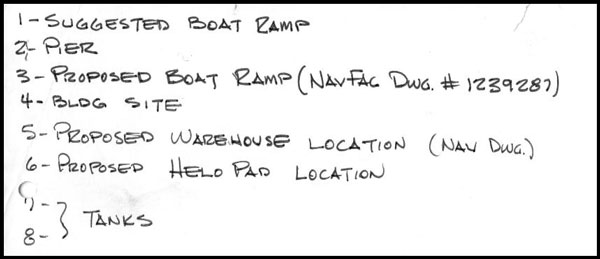 1 - SUGGESTED BOAT RAMP
2 - PIER
3 - PROPOSED BOAT RAMP (NAVFAC DWG. # 1239287)
4 - BLDG SITE
5 - PROPOSED WAREHOUSE LOCATION (NAV DWG.)
6 - PROPOSED HELO PAD LOCATION
7 -
8 - } TANKS